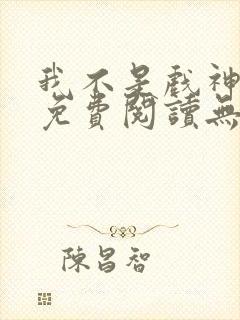 我不是戲神
免費閱讀無
陳昌智